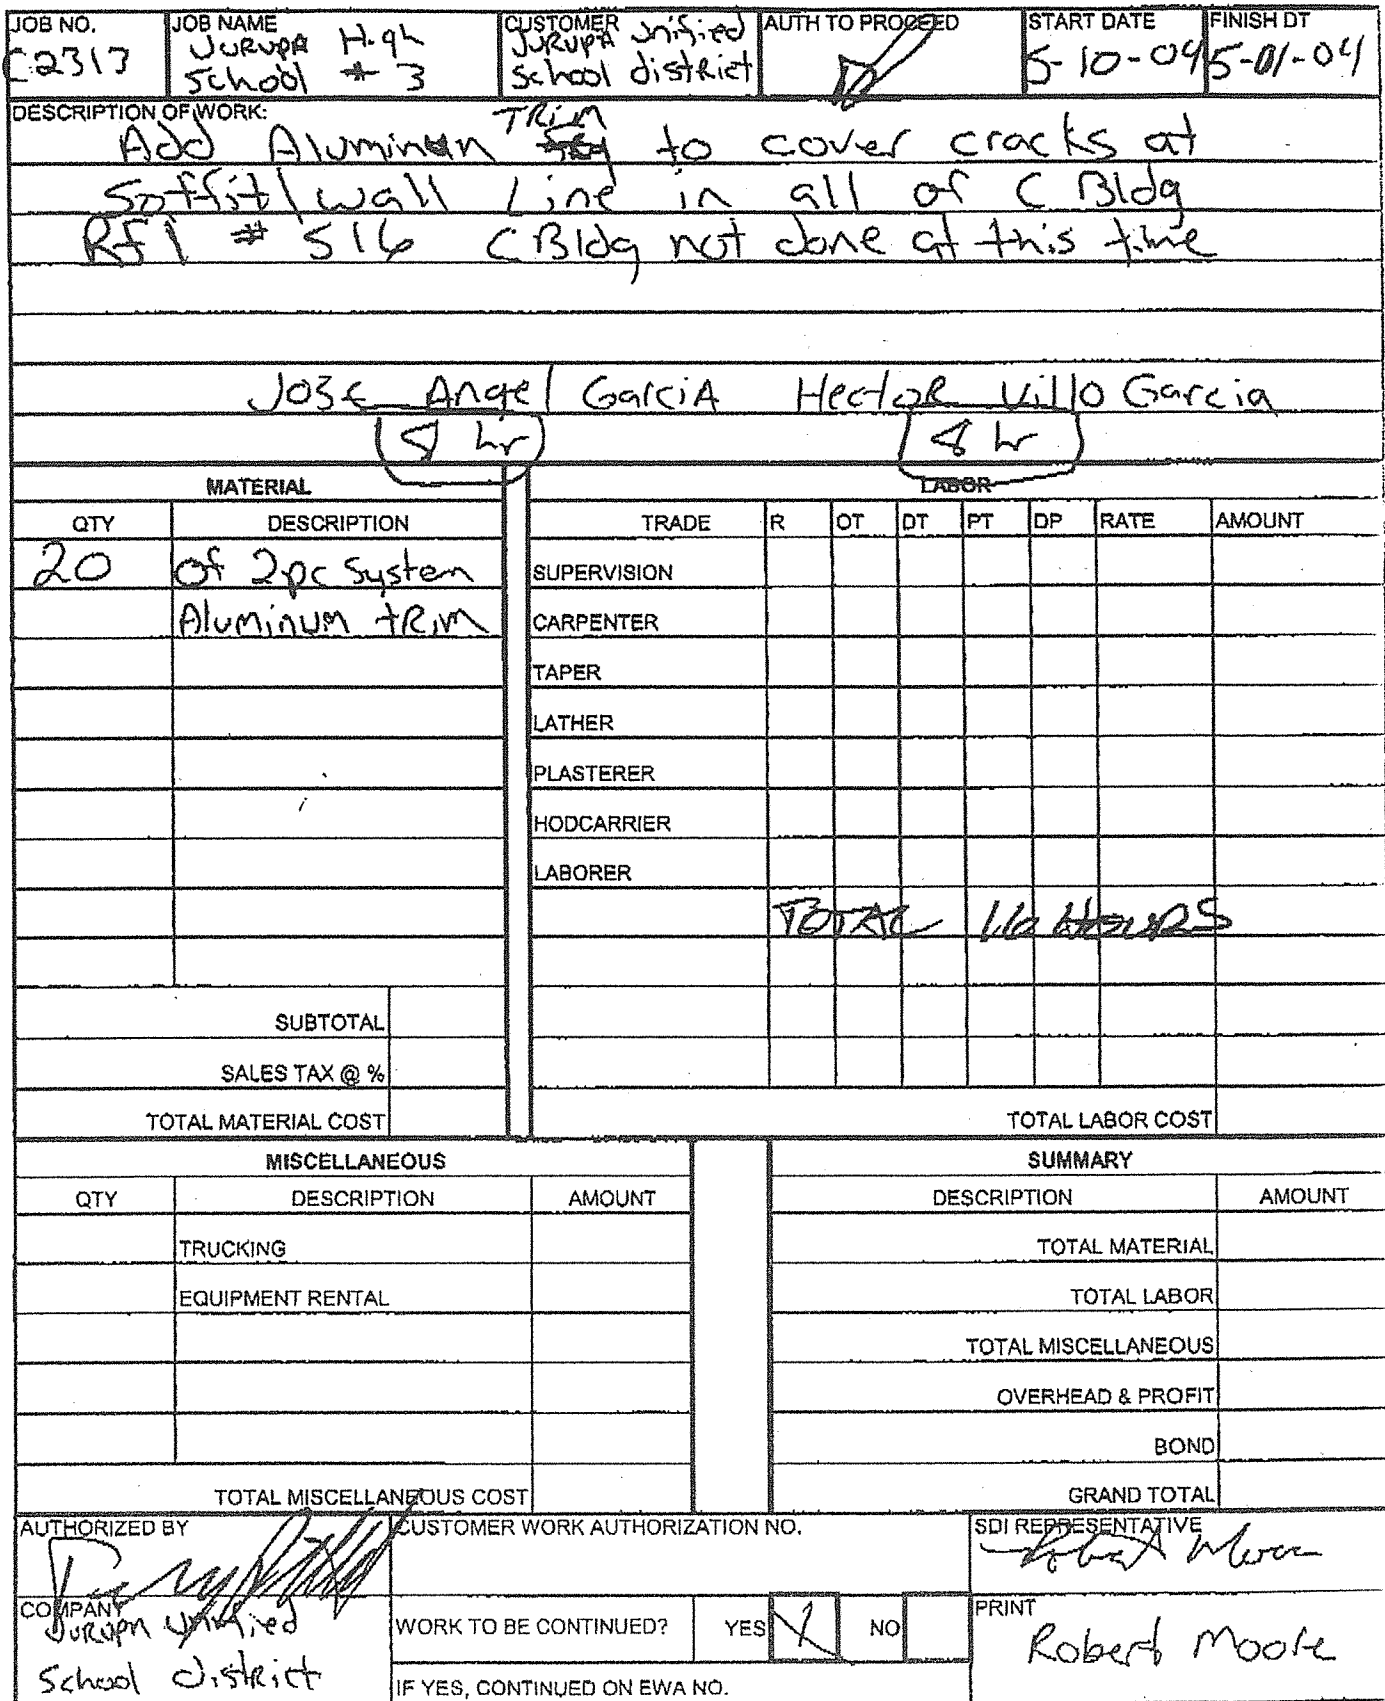 JOB NO.
C2313
JOB NAME
JURUPA High
School # 3
CUSTOMER
JURUPA Unified
School district
AUTH TO PROCEED
START DATE
5-10-04
FINISH DT
5-01-04
DESCRIPTION OF WORK:
TRIM
Add Aluminun to cover cracks at
Soffit/wall Line in all of C Bldg
RfI # 516 C Bldg not done at this time
JOSE Angel GarciA HectoR Villo Garcia
8 hr 8 hr
MATERIAL
QTY DESCRIPTION
20 of 2pc System
Aluminum tRim
SUBTOTAL
SALES TAX @ %
TOTAL MATERIAL COST
LABOR
TRADE R OT DT PT DP RATE AMOUNT
SUPERVISION
CARPENTER
TAPER
LATHER
PLASTERER
HODCARRIER
LABORER
TOTAL 16 HOURS
TOTAL LABOR COST
MISCELLANEOUS
QTY DESCRIPTION AMOUNT
TRUCKING
EQUIPMENT RENTAL
TOTAL MISCELLANEOUS COST
SUMMARY
DESCRIPTION AMOUNT
TOTAL MATERIAL
TOTAL LABOR
TOTAL MISCELLANEOUS
OVERHEAD & PROFIT
BOND
GRAND TOTAL
AUTHORIZED BY
CUSTOMER WORK AUTHORIZATION NO.
SDI REPRESENTATIVE
Robert Moore
COMPANY
JURUPA Unified
School distRict
WORK TO BE CONTINUED? YES X NO
IF YES, CONTINUED ON EWA NO.
PRINT
Robert Moore